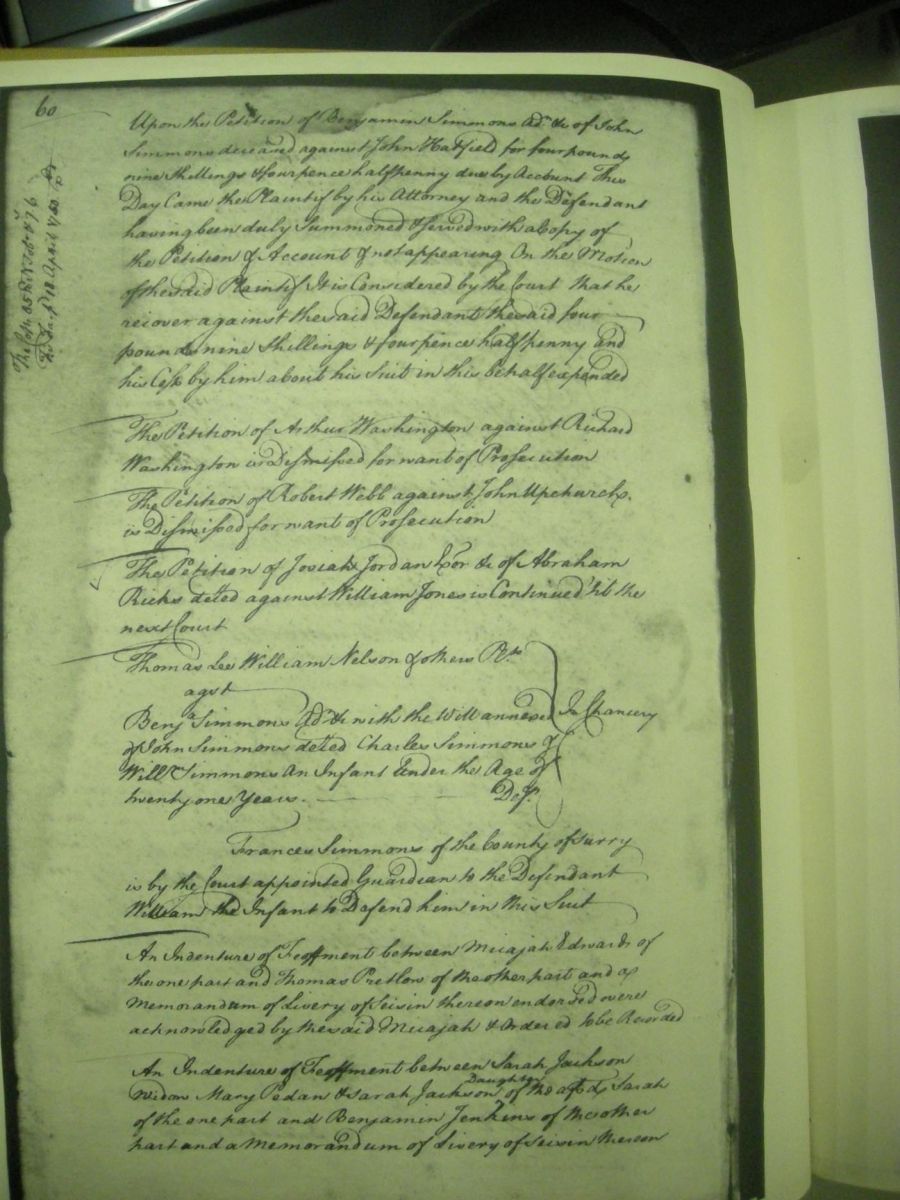 60
Upon the Petition of Benjamin Simmons Adr &c of John
Simmons deceased against John Hatfield for four pounds
nine shillings & four pence half penny due by Account This
Day Came the Plaintif by his Attorney and the Defendant
having been duly Summoned & served with a Copy of
the Petition & Account & not appearing On the Motion
of the said Plaintif It is Considered by the Court that he
recover against the said Defendant the said four
pounds nine Shillings & four pence half penny and
his Costs by him about his Suit in this behalf expended
The Petition of Arthur Washington against Richard
Washington is Dismissed for want of Prosecution
The Petition of Robert Webb against John Upchurch
is Dismissed for want of Prosecution
The Petition of Josiah Jordan Exor &c of Abraham
Ricks deced against William Jones is Continued 'til the
next Court
Thomas Lee William Nelson & others Plts
agst
Benja Simmons Adr &c with the Will annexed
of John Simmons deced Charles Simmons &
Willm Simmons An Infant Under the Age of
twenty one Years. Defts
In Chancery
Frances Simmons of the County of Surry
is by the Court appointed Guardian to the Defendant
William the Infant to Defend him in this Suit
An Indenture of Feoffment between Micajah Edwards of
the one part and Thomas Pretlow of the other part and a
Memorandum of Livery of Seisin thereon endorsed were
acknowledged by the said Micajah & Ordered to be Recorded
An Indenture of Feoffment between Sarah Jackson
Widow Mary Pedan & Sarah Jackson Daughter of the afsd Sarah
of the one part and Benjamin Jenkins of the other
part and a Memorandum of Livery of Seisin thereon